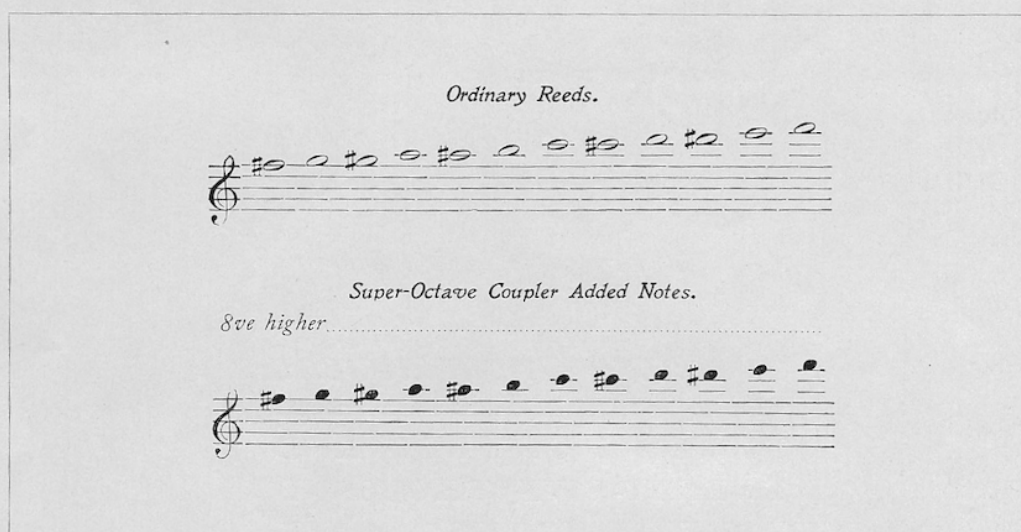 Ordinary Reeds.
Super-Octave Coupler Added Notes.
8ve higher